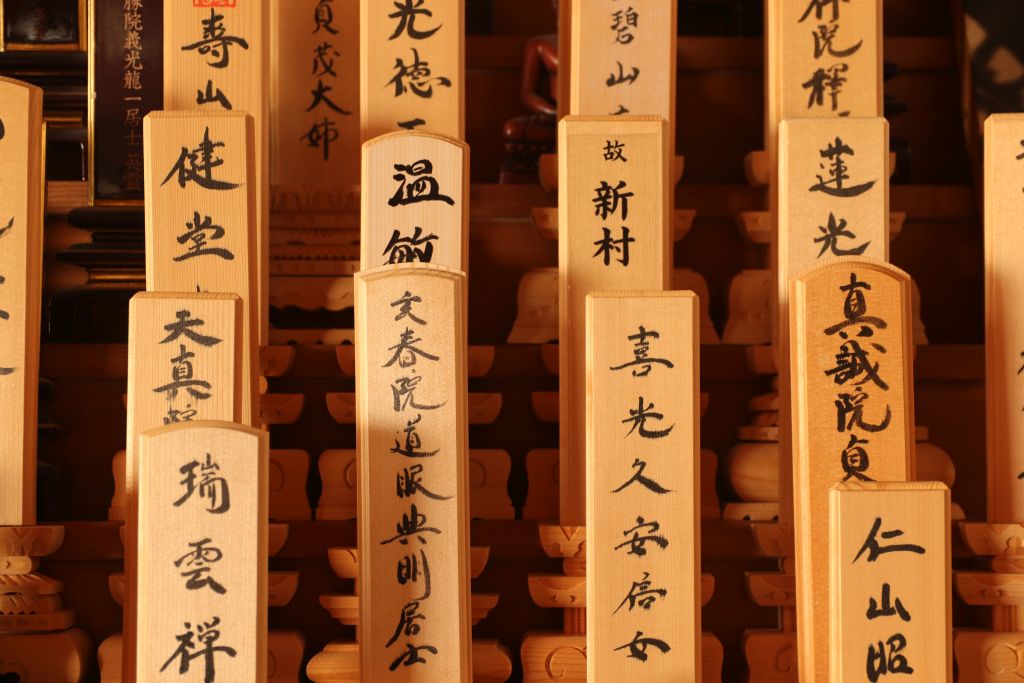 勝院義光龍一居士
壽山
貞茂大姉
光徳
碧山
院釋
健堂
温敏
故
新村
蓮光
天真院
文春院道眼典明居士
喜光久安信女
真誠院貞
瑞雲禅
仁山昭